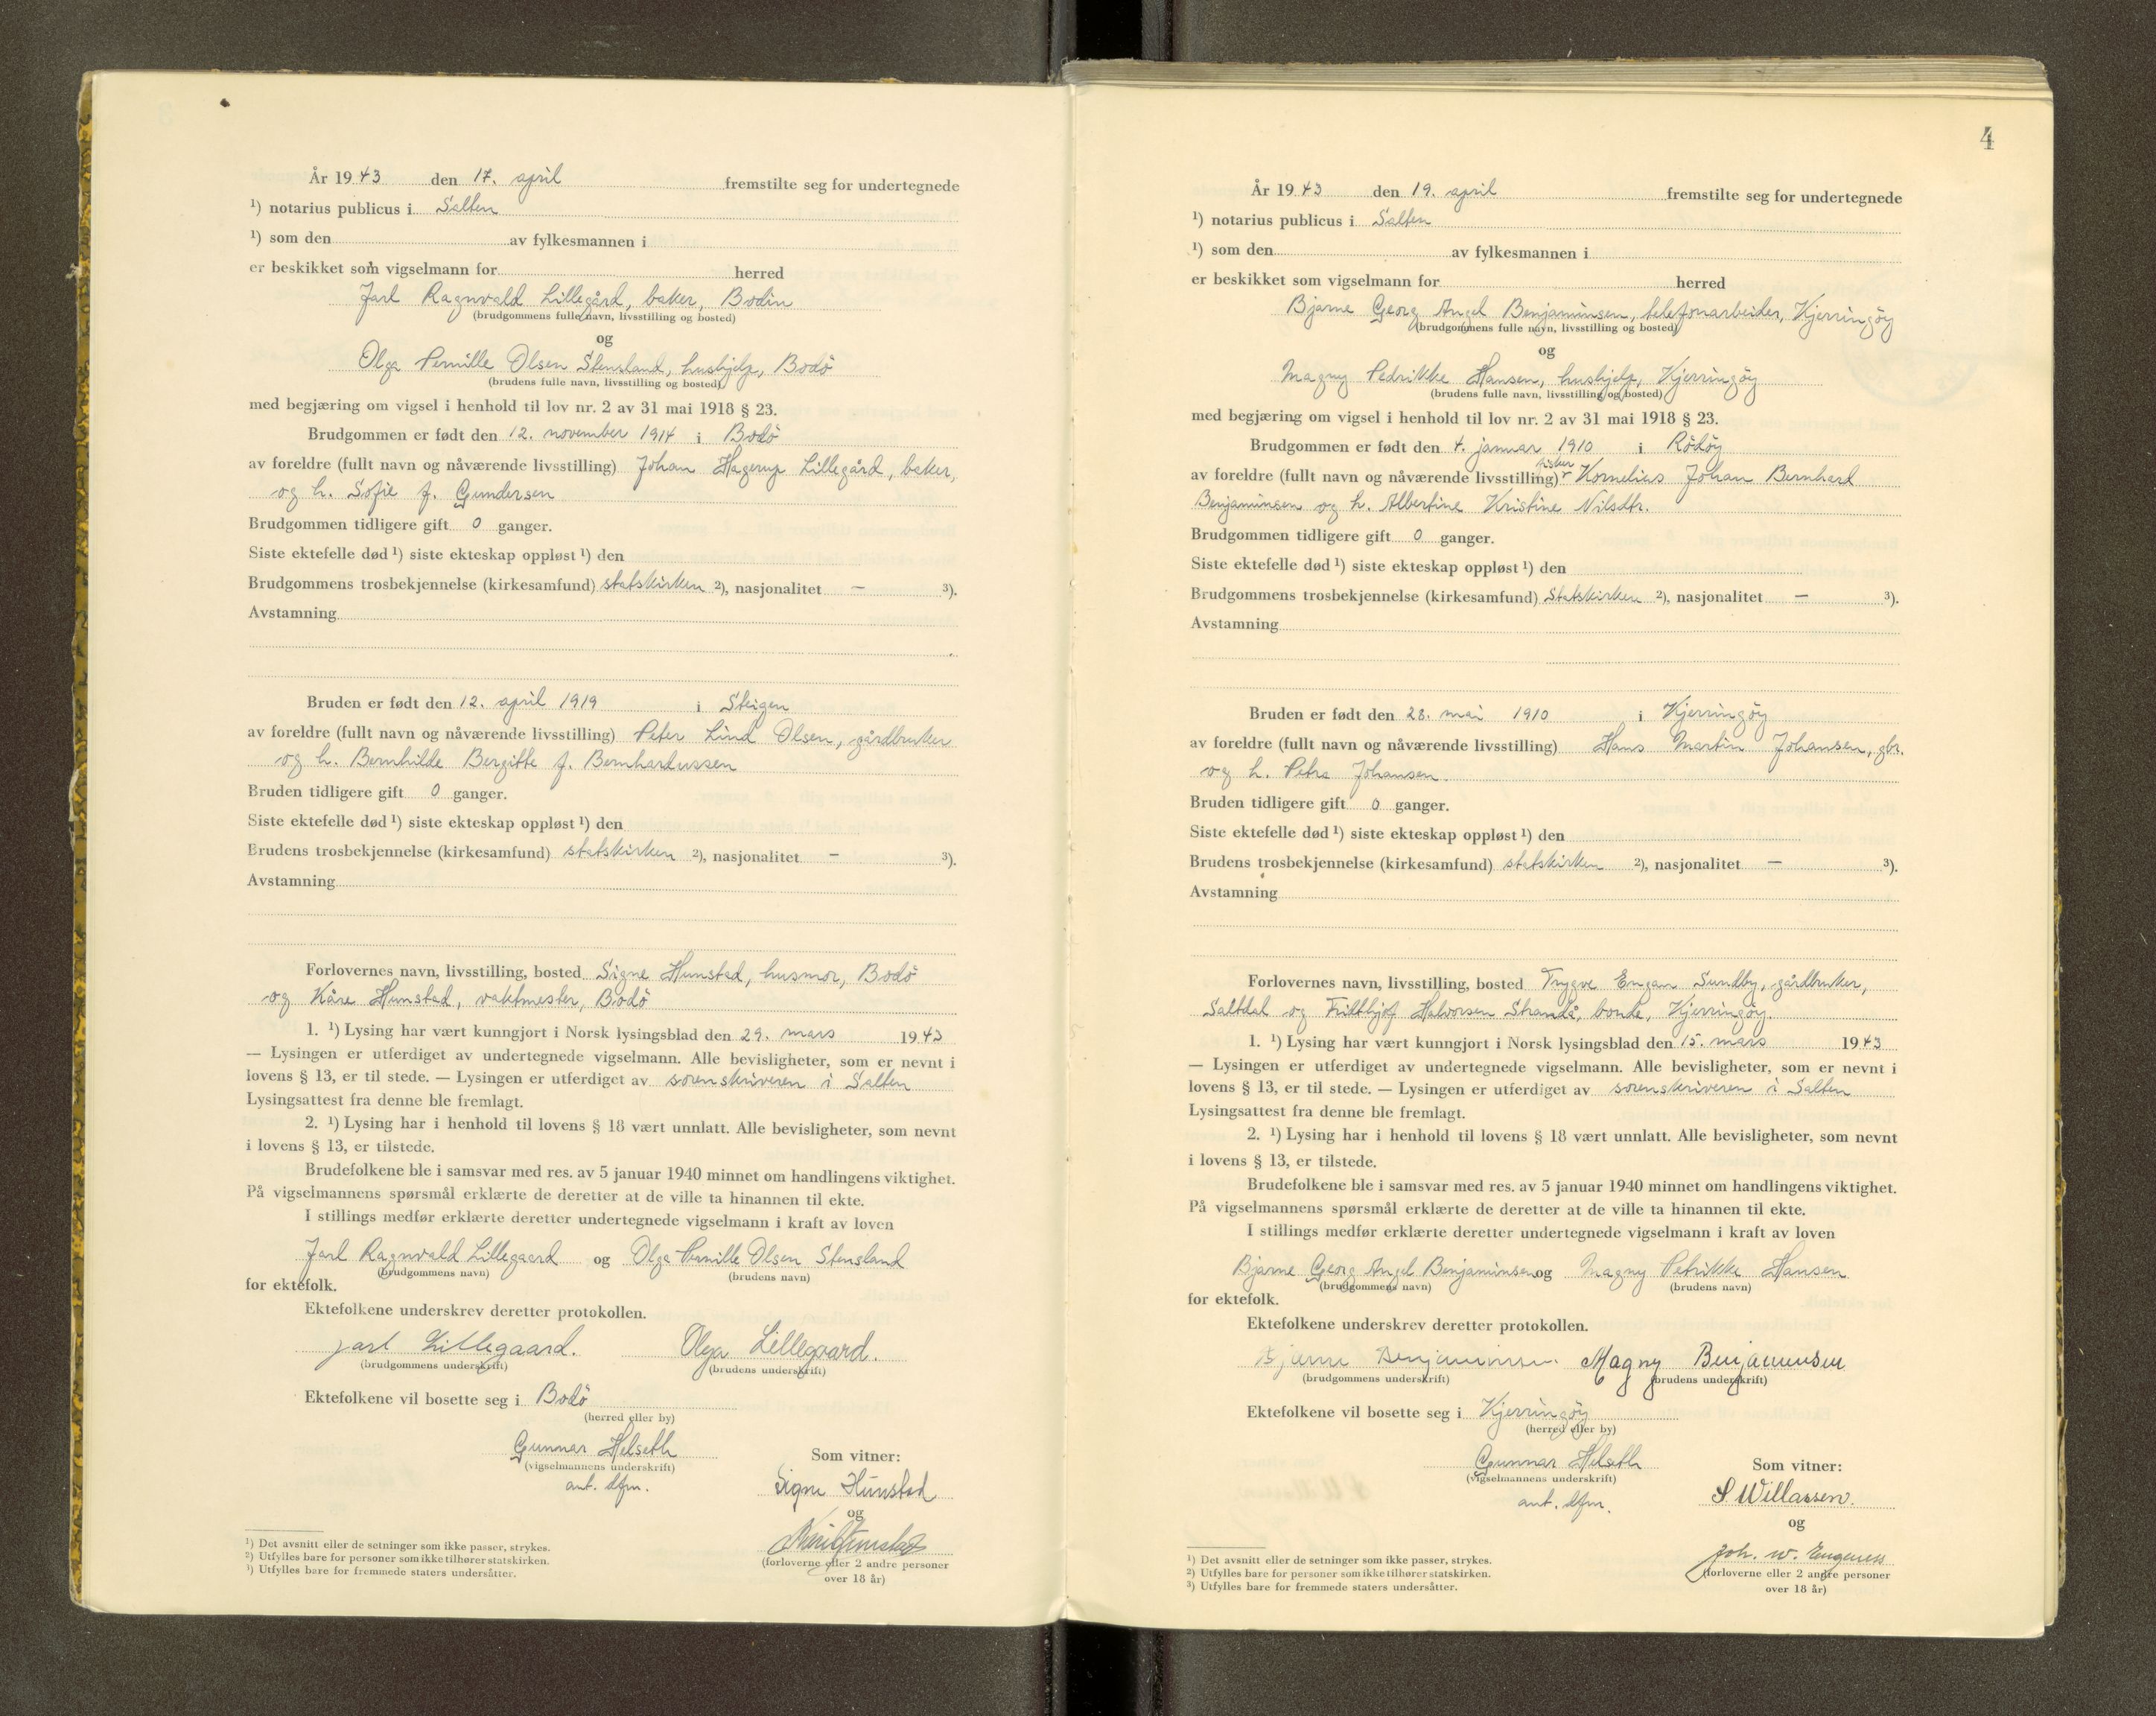 År 1943 den 17. april fremstilte seg for undertegnede
¹) notarius publicus i Salten
¹) som den av fylkesmannen i
er beskikket som vigselmann for herred
Jarl Ragnvald Lillegård, baker, Bodin
(brudgommens fulle navn, livsstilling og bosted)
og
Olga Pernille Olsen Stensland, hushjelp, Bodö
(brudens fulle navn, livsstilling og bosted)
med begjæring om vigsel i henhold til lov nr. 2 av 31 mai 1918 § 23.
Brudgommen er født den 12. november 1914 i Bodö
av foreldre (fullt navn og nåværende livsstilling) Johan Hagerup Lillegård, baker,
og h. Sofie f. Gundersen
Brudgommen tidligere gift 0 ganger.
Siste ektefelle død ¹) siste ekteskap oppløst ¹) den
Brudgommens trosbekjennelse (kirkesamfund) statskirken ²), nasjonalitet — ³).
Avstamning
Bruden er født den 12. april 1919 i Steigen
av foreldre (fullt navn og nåværende livsstilling) Peter Lind Olsen, gårdbruker
og h. Bernhilde Bergitte f. Bernhardussen
Bruden tidligere gift 0 ganger.
Siste ektefelle død ¹) siste ekteskap oppløst ¹) den
Brudens trosbekjennelse (kirkesamfund) statskirken ²), nasjonalitet — ³).
Avstamning
Forlovernes navn, livsstilling, bosted Signe Hunstad, husmor, Bodö
og Kåre Hunstad, vaktmester, Bodö
1. ¹) Lysing har vært kunngjort i Norsk lysingsblad den 29. mars 1943
— Lysingen er utferdiget av undertegnede vigselmann. Alle bevisligheter, som er nevnt i
lovens § 13, er til stede. — Lysingen er utferdiget av sorenskriveren i Salten
Lysingsattest fra denne ble fremlagt.
2. ¹) Lysing har i henhold til lovens § 18 vært unnlatt. Alle bevisligheter, som nevnt
i lovens § 13, er tilstede.
Brudefolkene ble i samsvar med res. av 5 januar 1940 minnet om handlingens viktighet.
På vigselmannens spørsmål erklærte de deretter at de ville ta hinannen til ekte.
I stillings medfør erklærte deretter undertegnede vigselmann i kraft av loven
Jarl Ragnvald Lillegaard og Olga Pernille Olsen Stensland
(brudgommens navn) (brudens navn)
for ektefolk.
Ektefolkene underskrev deretter protokollen.
Jarl Lillegaard. Olga Lillegaard.
(brudgommens underskrift) (brudens underskrift)
Ektefolkene vil bosette seg i Bodö
(herred eller by)
Gunnar Helseth
(vigselmannens underskrift)
aut. dfm.
Som vitner:
Signe Hunstad
og
(forloverne eller 2 andre personer
over 18 år)
¹) Det avsnitt eller de setninger som ikke passer, strykes.
²) Utfylles bare for personer som ikke tilhører statskirken.
³) Utfylles bare for fremmede staters undersåtter.
4
År 1943 den 19. april fremstilte seg for undertegnede
¹) notarius publicus i Salten
¹) som den av fylkesmannen i
er beskikket som vigselmann for herred
Bjarne Georg Angel Benjaminsen, telefonarbeider, Kjerringöy
(brudgommens fulle navn, livsstilling og bosted)
og
Magny Pedrikke Hansen, hushjelp, Kjerringöy
(brudens fulle navn, livsstilling og bosted)
med begjæring om vigsel i henhold til lov nr. 2 av 31 mai 1918 § 23.
Brudgommen er født den 4. januar 1910 i Rödöy
av foreldre (fullt navn og nåværende livsstilling) fisker Kornelius Johan Bernhard
Benjaminsen og h. Albertine Kristine Nilsdtr.
Brudgommen tidligere gift 0 ganger.
Siste ektefelle død ¹) siste ekteskap oppløst ¹) den
Brudgommens trosbekjennelse (kirkesamfund) Statskirken ²), nasjonalitet — ³).
Avstamning
Bruden er født den 28. mai 1910 i Kjerringöy
av foreldre (fullt navn og nåværende livsstilling) Hans Martin Johansen, gbr.
og h. Petra Johansen.
Bruden tidligere gift 0 ganger.
Siste ektefelle død ¹) siste ekteskap oppløst ¹) den
Brudens trosbekjennelse (kirkesamfund) statskirken ²), nasjonalitet — ³).
Avstamning
Forlovernes navn, livsstilling, bosted Trygve Engan Sundby, gårdbruker,
Saltdal og Fridthjof Halvorsen Strandå, bonde, Kjerringöy.
1. ¹) Lysing har vært kunngjort i Norsk lysingsblad den 15. mars 1943
— Lysingen er utferdiget av undertegnede vigselmann. Alle bevisligheter, som er nevnt i
lovens § 13, er til stede. — Lysingen er utferdiget av sorenskriveren i Salten
Lysingsattest fra denne ble fremlagt.
2. ¹) Lysing har i henhold til lovens § 18 vært unnlatt. Alle bevisligheter, som nevnt
i lovens § 13, er tilstede.
Brudefolkene ble i samsvar med res. av 5 januar 1940 minnet om handlingens viktighet.
På vigselmannens spørsmål erklærte de deretter at de ville ta hinannen til ekte.
I stillings medfør erklærte deretter undertegnede vigselmann i kraft av loven
Bjarne Georg Angel Benjaminsen og Magny Petrikke Hansen
(brudgommens navn) (brudens navn)
for ektefolk.
Ektefolkene underskrev deretter protokollen.
Bjarne Benjaminsen. Magny Benjaminsen
(brudgommens underskrift) (brudens underskrift)
Ektefolkene vil bosette seg i Kjerringöy
(herred eller by)
Gunnar Helseth
(vigselmannens underskrift)
aut. dfm.
Som vitner:
S Willassen.
og
Joh. W.
(forloverne eller 2 andre personer
over 18 år)
¹) Det avsnitt eller de setninger som ikke passer, strykes.
²) Utfylles bare for personer som ikke tilhører statskirken.
³) Utfylles bare for fremmede staters undersåtter.